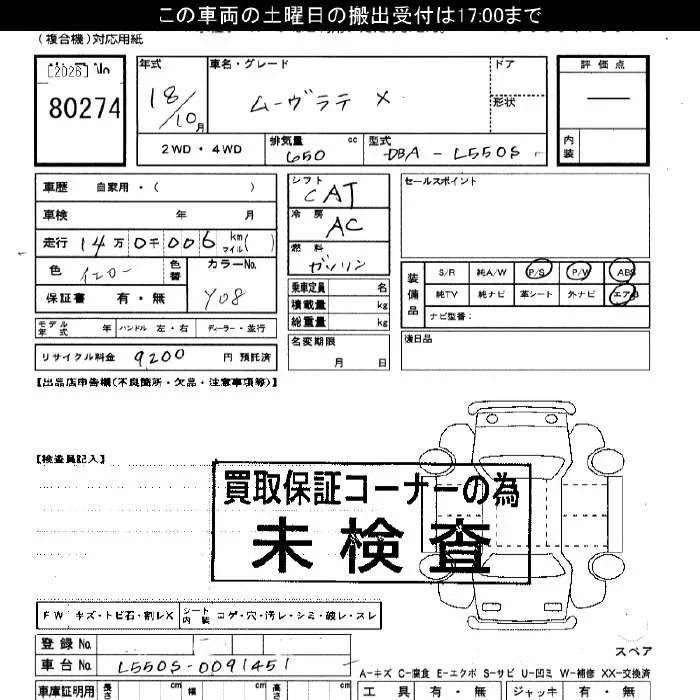 この車両の土曜日の搬出受付は17:00まで
(複合機)対応用紙
[2026] No
80274
年式
18/10月
車名・グレード
ムーヴラテ X
ドア
形状
評価点
内装
2WD・4WD
排気量 cc
650
型式
DBA-L550S
車歴 自家用・( )
車検 年 月
走行 14万0千006 km マイル( )
色 イエロー
色替
カラーNo.
Y08
保証書 有・無
シフト
CAT
冷房
AC
燃料
ガソリン
乗車定員 名
積載量 kg
総重量 kg
名変期限
月 日
セールスポイント
装備品
S/R 純A/W P/S P/W ABS
純TV 純ナビ 革シート 外ナビ エアB
ナビ型番:
後日品
モデル年式 年 ハンドル 左・右 ディーラー・並行
リサイクル料金 9200 円 預託済
【出品店申告欄(不良箇所・欠品・注意事項等)】
【検査員記入】
買取保証コーナーの為
未検査
FW キズ・トビ石・割レX
シート内装 コゲ・穴・汚レ・シミ・破レ・スレ
登録No.
車台No. L550S-0091451
スペア
A-キズ C-腐食 E-エクボ S-サビ U-凹ミ W-補修 XX-交換済
車庫証明用 長さ cm 幅 cm 高さ cm
工具 有・無 ジャッキ 有・無